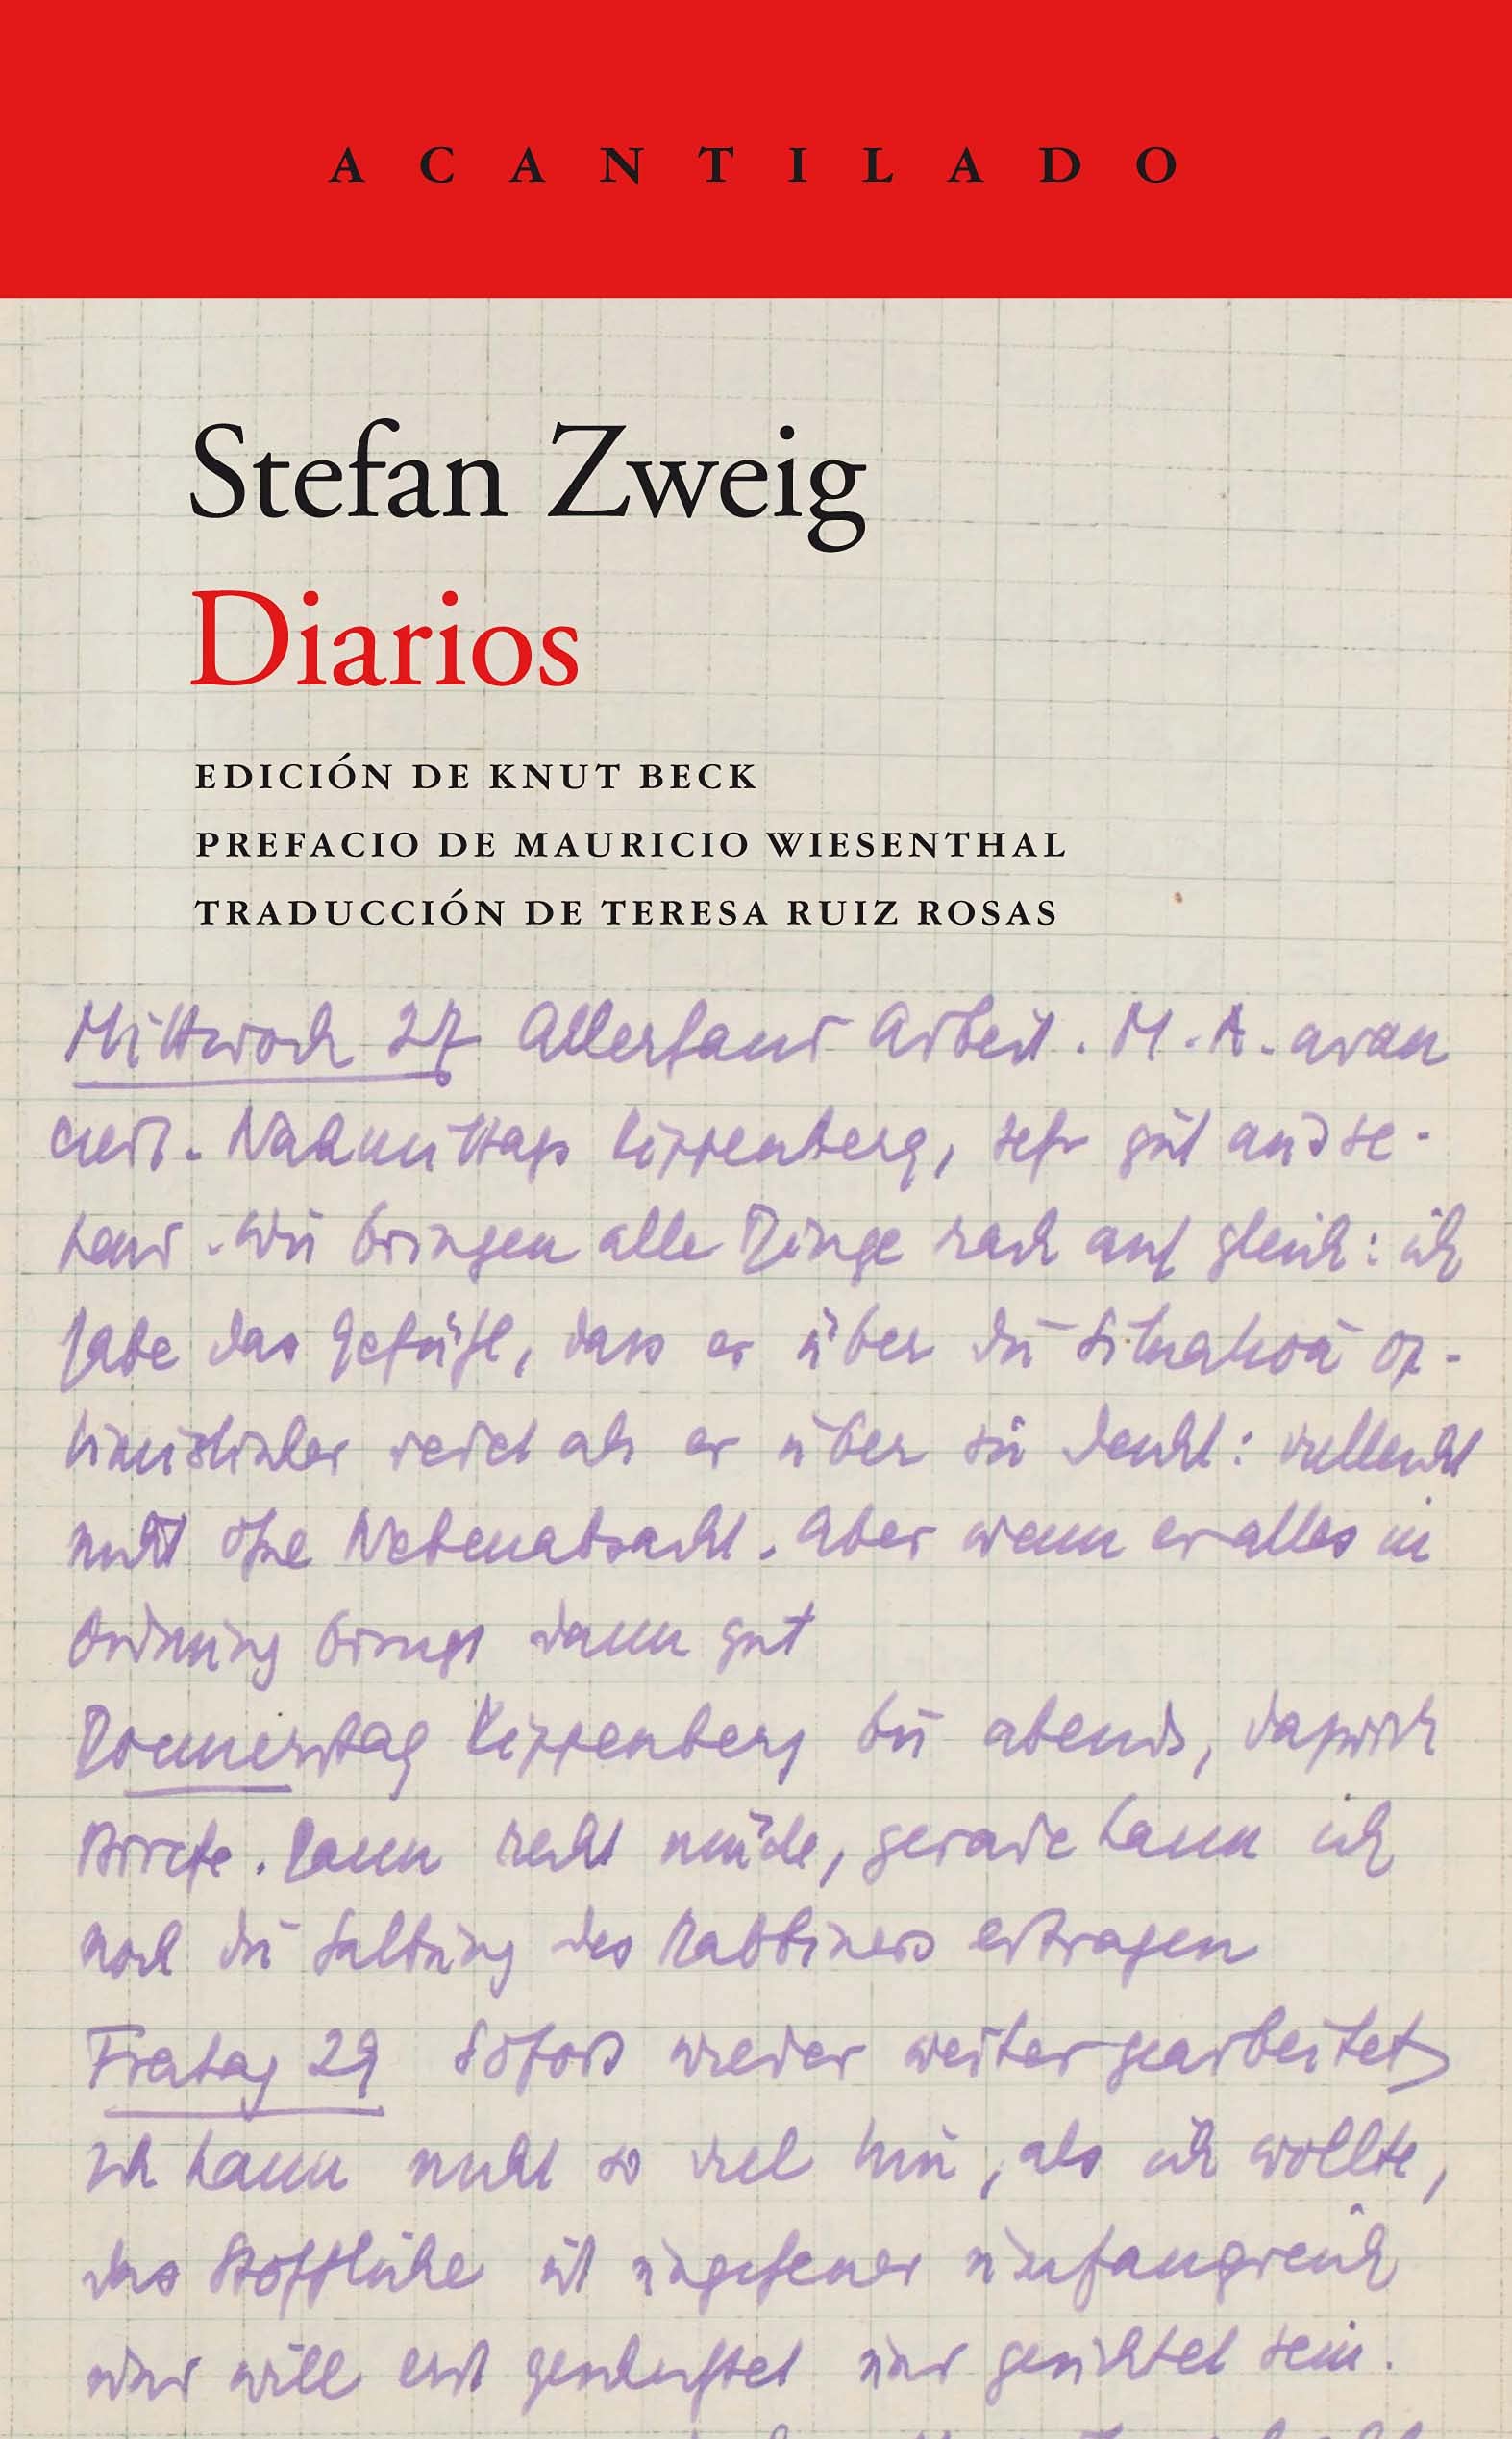 ACANTILADO
Stefan Zweig
Diarios
EDICIÓN DE KNUT BECK
PREFACIO DE MAURICIO WIESENTHAL
TRADUCCIÓN DE TERESA RUIZ ROSAS
Mittwoch 27 Allerhand Arbeit. M. A. avan
ciert. Nachmittags Kippenberg, sehr gut ausse-
hend. Wir bringen alle Dinge rasch auf gleich: ich
habe das Gefühl, dass er über die Situation op-
timistischer redet als er über sie denkt: vielleicht
nicht ohne Nebenabsicht. Aber wenn er alles in
Ordnung bringt dann gut
Donnerstag Kippenberg bis abends, dazwisch
Briefe. Dann recht müde, gerade kann ich
noch die des Rabbiners ertragen
Freitag 29 Sofort wieder weiter gearbeitet
Ich kann nicht so viel tun, als ich wollte,
das Stoffliche ist ungeheuer umfangreich
und will erst und gesichtet sein.